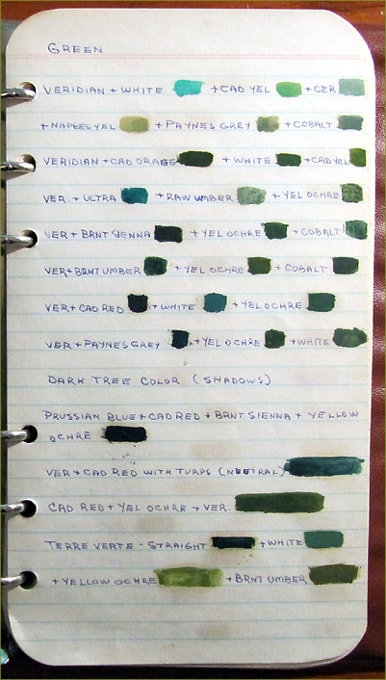 GREEN
VERIDIAN + WHITE + CAD YEL + CER
+ NAPLES YEL + PAYNES GREY + COBALT
VERIDIAN + CAD ORAGE + WHITE + CAD YEL
VER. + ULTRA + RAW UMBER + YEL OCHRE
VER + BRNT SIENNA + YEL OCHRE + COBALT
VER + BRNT UMBER + YEL OCHRE + COBALT
VER + CAD RED + WHITE + YEL OCHRE
VER + PAYNES GREY + YEL OCHRE + WHITE
DARK TREE COLOR (SHADOWS)
PRUSSIAN BLUE + CAD RED + BRNT SIENNA + YELLOW
OCHRE
VER + CAD RED WITH TURPS (NEUTRAL)
CAD RED + YEL OCHRE + VER.
TERRE VERTE - STRAIGHT + WHITE
+ YELLOW OCHRE + BRNT UMBER